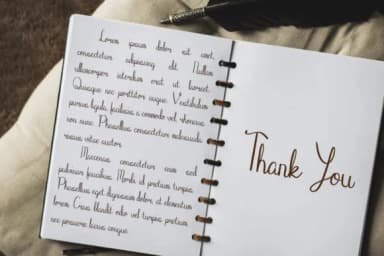 Lorem ipsum dolor sit amet,
consectetur adipiscing elit. Nullam
ullamcorper interdum erat ut laoreet.
Quisque nec porttitor augue. Vestibulum
purus ligula, faucibus a commodo vel, rhoncus
non nunc. Phasellus consectetur malesuada
massa vitae auctor.
Maecenas consectetur eros sed
pulvinar faucibus. Morbi id pretium turpis.
Phasellus eget dignissim dolor, at elementum
lorem. Cras blandit odio vel turpis pretium
nec posuere lacus congue.
Thank You